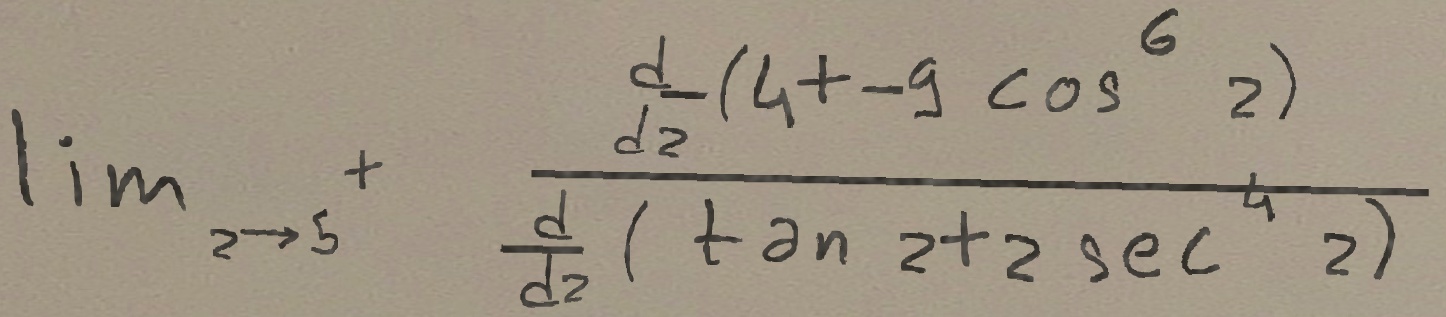 \lim_{z \to 5^+} \frac{\frac{d}{dz}(4+-9 \cos^6 z)}{\frac{d}{dz}(\tan z+z \sec^4 z)}